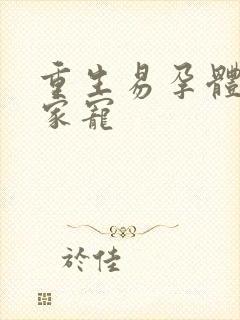 重生易孕體
家寵
於佳